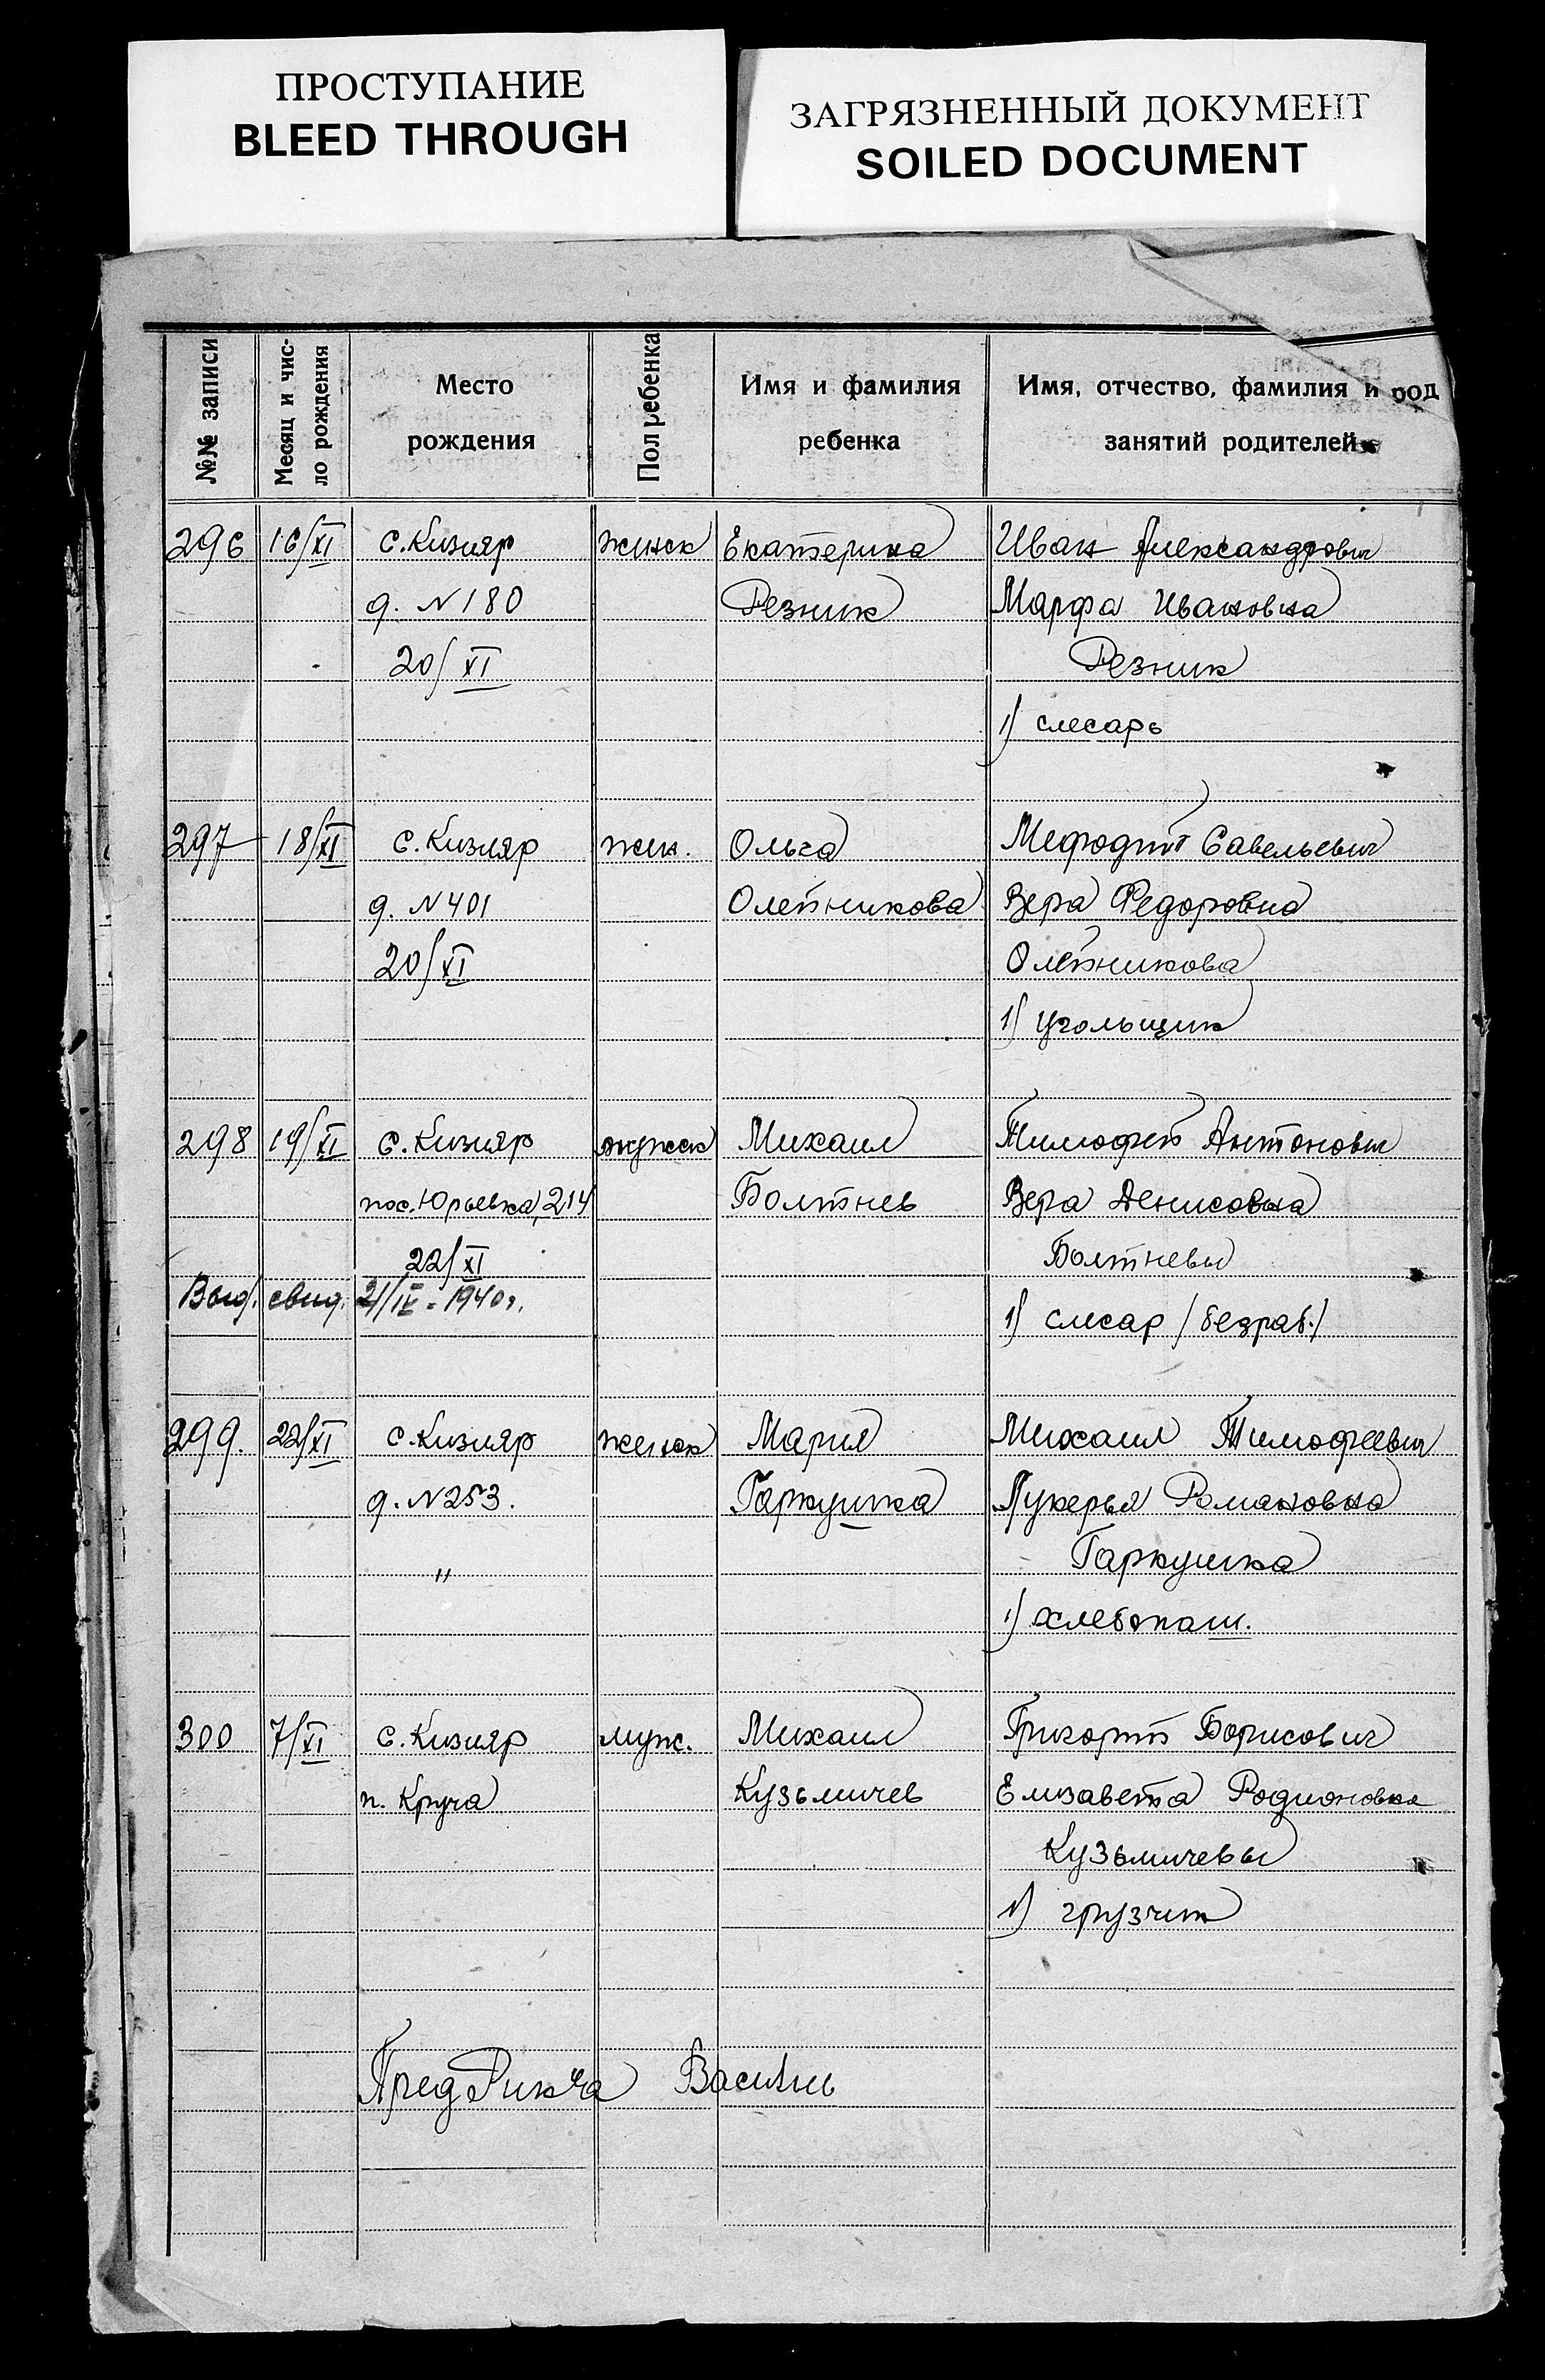 ПРОСТУПАНИЕ
BLEED THROUGH
ЗАГРЯЗНЕННЫЙ ДОКУМЕНТ
SOILED DOCUMENT
№№ записи
Месяц и чис-
ло рождения
Место
рождения
Пол ребенка
Имя и фамилия
ребенка
Имя, отчество, фамилия и род
занятий родителей
296 16/XI с. Кизияр женск Екатерина Иван Александрович
д. N 180 Резник Марфа Ивановна
20/XI Резник
1) слесарь
297 18/XI с. Кизияр жен. Ольга Мефодий Савельевич
д. N 401 Олейникова Вера Федоровна
20/XI Олейникова
1) угольщик
298 19/XI с. Кизияр мужск Михаил Тимофей Антонович
пос. Юрьевка, 214 Болтнев Вера Денисовна
22/XI Болтневы
Выд. свид. 21/IV - 1940 г.
1) слесар /безраб./
299. 22/XI с. Кизияр женск Мария Михаил Тимофеевич
д. N 253. Гаркушка Лукерья Романовна
" Гаркушка
1) хлебопаш.
300 7/XI с. Кизияр муж. Михаил Григорий Борисович
п. Круча Кузьмичев Елизавета Родионовна
Кузьмичевы
1) грузчик
Пред